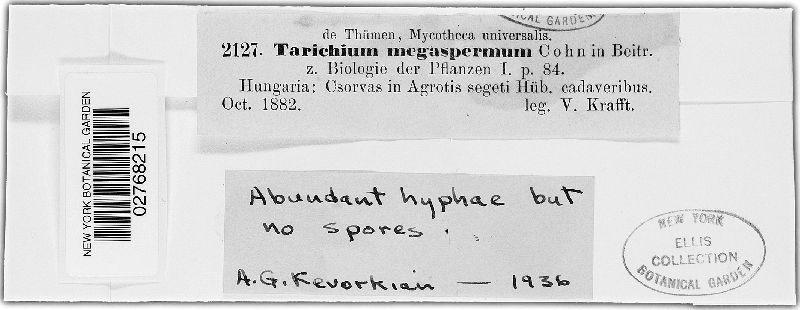 CAL GARDEN
de Thümen, Mycotheca universalis.
2127. Tarichium megaspermum Cohn in Beitr.
z. Biologie der Pflanzen I. p. 84.
Hungaria: Csorvas in Agrotis segeti Hüb. cadaveribus.
Oct. 1882. leg. V. Krafft.
NEW YORK BOTANICAL GARDEN
02768215
Abundant hyphae but
no spores.
A.G. Kevorkian — 1936
NEW YORK
ELLIS
COLLECTION
BOTANICAL GARDEN